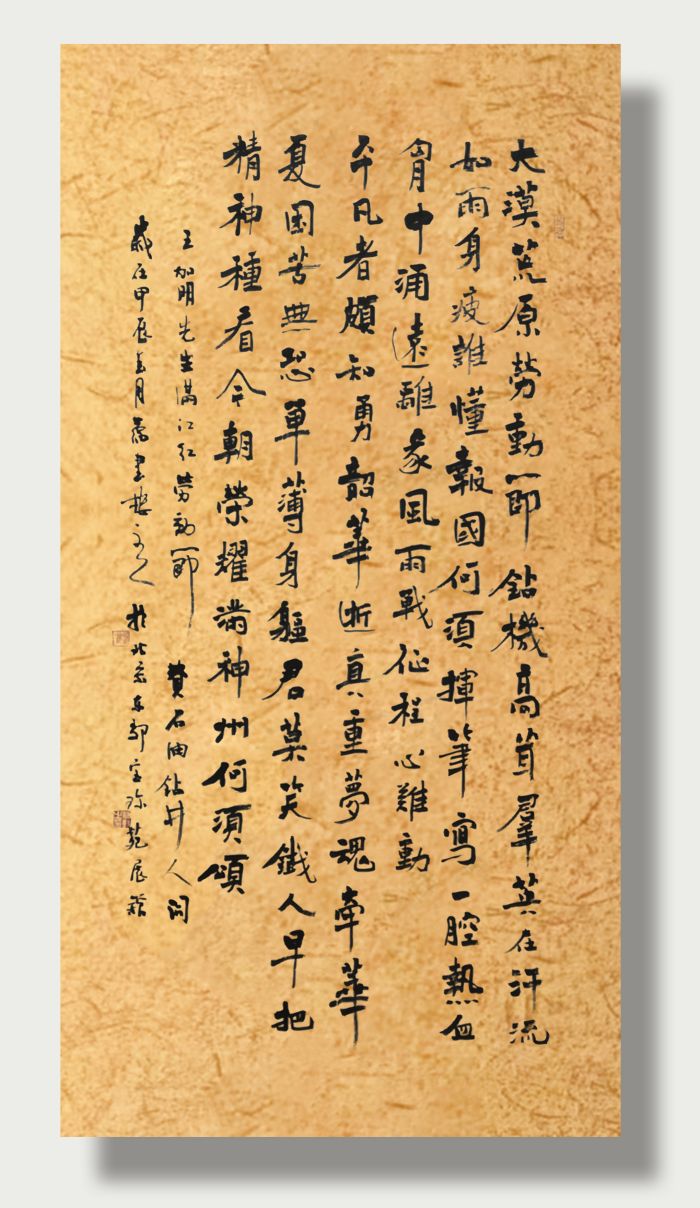 大漠荒原勞動節鉆機高聳羣英在汗流
如雨身疲誰懂報國何須揮筆寫一腔熱血
胷中涌遠離家風雨戰征程心難動
平凡者頗知勇韶華逝真重夢魂牽華
夏困苦無恐單薄身軀君莫笑鐵人早把
精神種看今朝榮耀滿神州何須頌
王加明先生滿江紅勞動節 贊石油鉆井人問
歲在甲辰月書樓主人於北京東部宝珍苑展